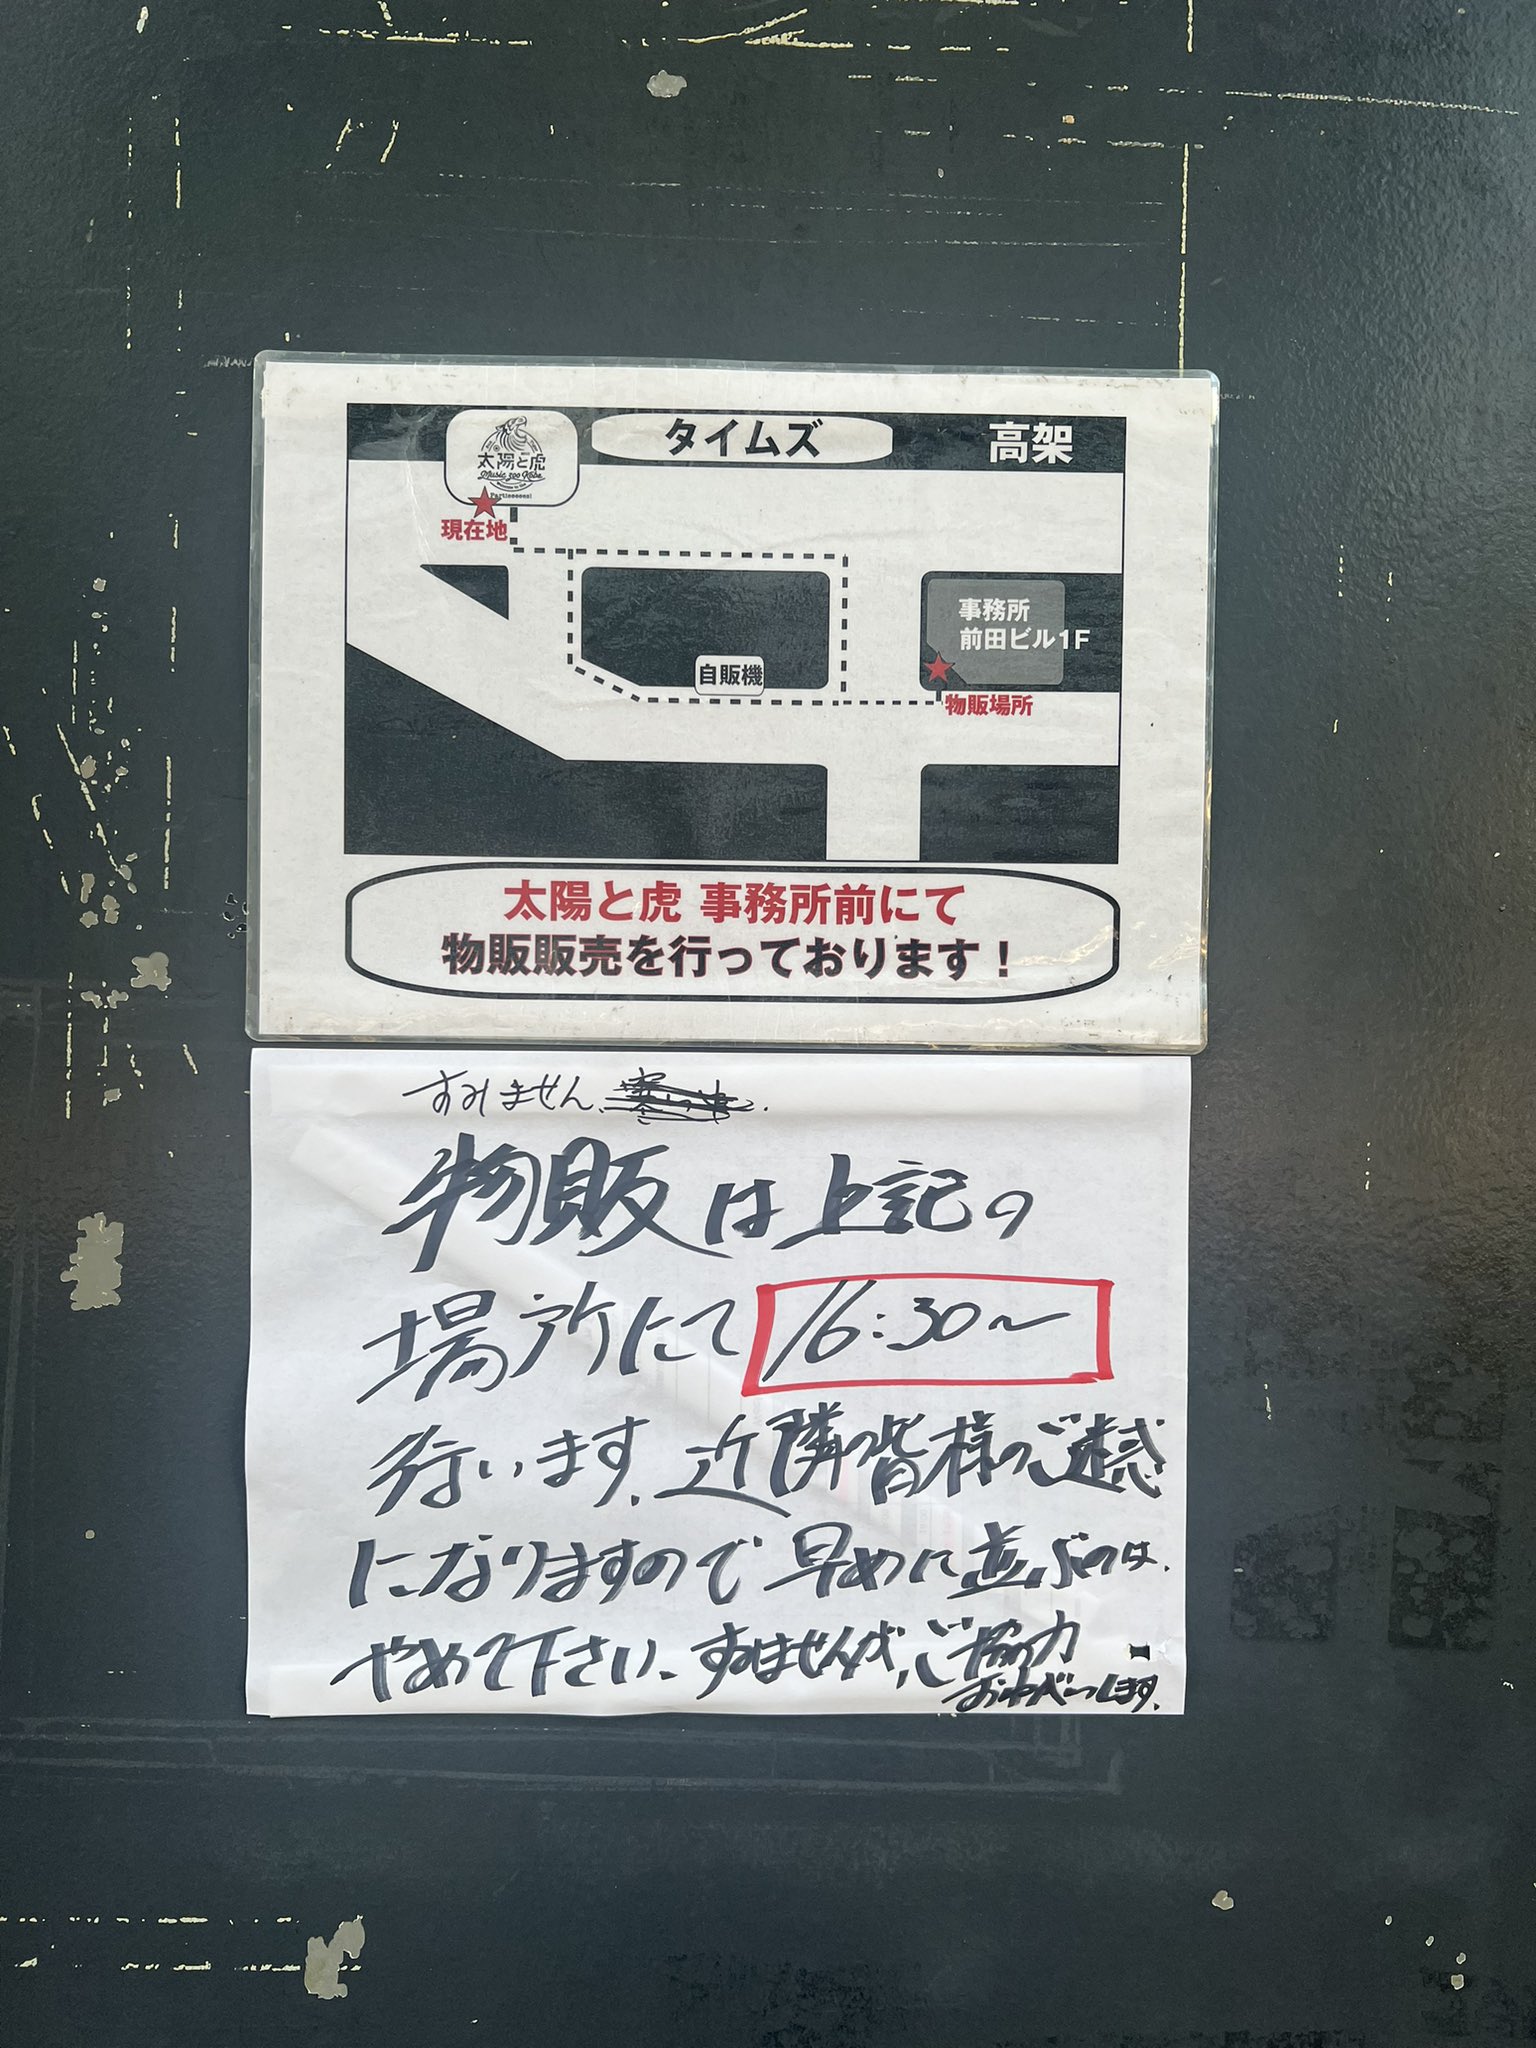 太陽と虎
Music zoo Kobe
タイムズ
高架
現在地
事務所
前田ビル1F
自販機
物販場所
太陽と虎 事務所前にて
物販販売を行っております！
すみません、
物販は上記の
場所にて 16:30〜
行います。近隣の皆様のご迷惑
になりますので早めに並ぶのは、
やめて下さい。すみませんが、ご協力
おねがいします。